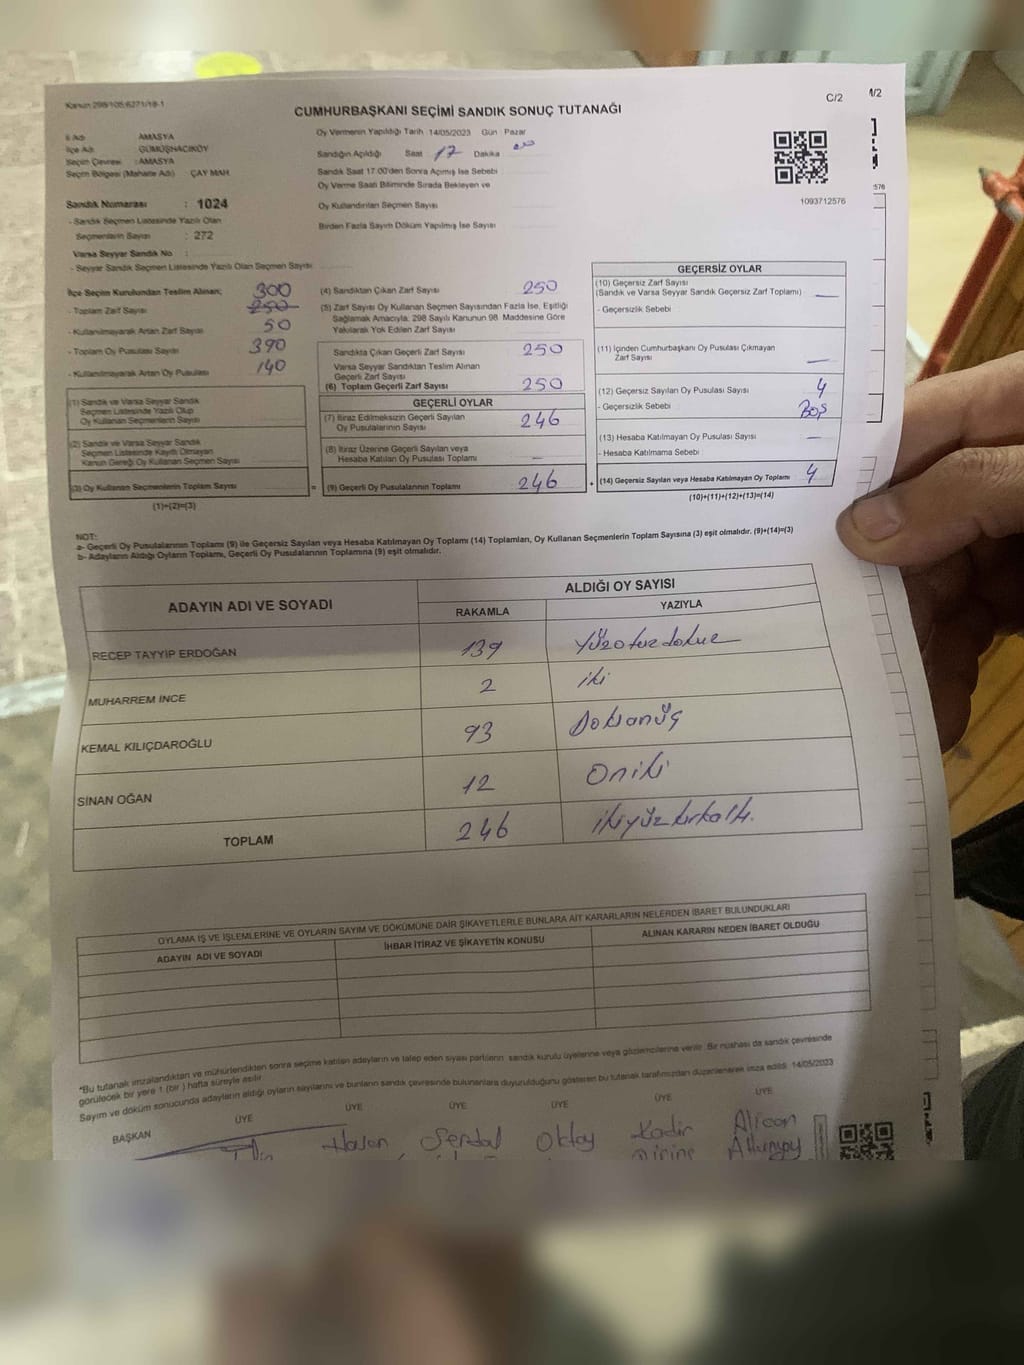 Kanun 298/105;6271/18-1
C/2
1/2
CUMHURBAŞKANI SEÇİMİ SANDIK SONUÇ TUTANAĞI
İl Adı : AMASYA
İlçe Adı : GÜMÜŞHACIKÖY
Seçim Çevresi : AMASYA
Seçim Bölgesi (Mahalle Adı) ÇAY MAH.
Sandık Numarası : 1024
- Sandık Seçmen Listesinde Yazılı Olan
Seçmenlerin Sayısı : 272
Varsa Seyyar Sandık No :
- Seyyar Sandık Seçmen Listesinde Yazılı Olan Seçmen Sayısı
Oy Vermenin Yapıldığı Tarih 14/05/2023 Gün Pazar
Sandığın Açıldığı Saat 17 Dakika
Sandık Saat 17:00'den Sonra Açılmış İse Sebebi
Oy Verme Saati Bitiminde Sırada Bekleyen ve
Oy Kullandırılan Seçmen Sayısı
Birden Fazla Sayım Döküm Yapılmış İse Sayısı
1093712576
576
İlçe Seçim Kurulundan Teslim Alınan; 300
- Toplam Zarf Sayısı 250
- Kullanılmayarak Artan Zarf Sayısı 50
- Toplam Oy Pusulası Sayısı 390
- Kullanılmayarak Artan Oy Pusulası 140
(1) Sandık ve Varsa Seyyar Sandık
Seçmen Listesinde Yazılı Olup
Oy Kullanan Seçmenlerin Sayısı
(2) Sandık ve Varsa Seyyar Sandık
Seçmen Listesinde Kayıtlı Olmayan
Kanun Gereği Oy Kullanan Seçmen Sayısı
(3) Oy Kullanan Seçmenlerin Toplam Sayısı
(1)+(2)=(3)
(4) Sandıktan Çıkan Zarf Sayısı 250
(5) Zarf Sayısı Oy Kullanan Seçmen Sayısından Fazla İse, Eşitliği
Sağlamak Amacıyla; 298 Sayılı Kanunun 98. Maddesine Göre
Yakılarak Yok Edilen Zarf Sayısı
Sandıkta Çıkan Geçerli Zarf Sayısı 250
Varsa Seyyar Sandıktan Teslim Alınan
Geçerli Zarf Sayısı
(6) Toplam Geçerli Zarf Sayısı 250
GEÇERLİ OYLAR
(7) İtiraz Edilmeksizin Geçerli Sayılan
Oy Pusulalarının Sayısı 246
(8) İtiraz Üzerine Geçerli Sayılan veya
Hesaba Katılan Oy Pusulası Toplamı —
= (9) Geçerli Oy Pusulalarının Toplamı 246 +
GEÇERSİZ OYLAR
(10) Geçersiz Zarf Sayısı
(Sandık ve Varsa Seyyar Sandık Geçersiz Zarf Toplamı) —
- Geçersizlik Sebebi
(11) İçinden Cumhurbaşkanı Oy Pusulası Çıkmayan
Zarf Sayısı —
(12) Geçersiz Sayılan Oy Pusulası Sayısı 4
- Geçersizlik Sebebi BOŞ
(13) Hesaba Katılmayan Oy Pusulası Sayısı —
- Hesaba Katılmama Sebebi
(14) Geçersiz Sayılan veya Hesaba Katılmayan Oy Toplamı 4
(10)+(11)+(12)+(13)=(14)
NOT:
a- Geçerli Oy Pusulalarının Toplamı (9) ile Geçersiz Sayılan veya Hesaba Katılmayan Oy Toplamı (14) Toplamları, Oy Kullanan Seçmenlerin Toplam Sayısına (3) eşit olmalıdır. (9)+(14)=(3)
b- Adayların Aldığı Oyların Toplamı, Geçerli Oy Pusulalarının Toplamına (9) eşit olmalıdır.
ADAYIN ADI VE SOYADI ALDIĞI OY SAYISI
RAKAMLA YAZIYLA
RECEP TAYYİP ERDOĞAN 139 Yüzotuzdokuz
MUHARREM İNCE 2 iki
KEMAL KILIÇDAROĞLU 93 Doksanüç
SİNAN OĞAN 12 Oniki
TOPLAM 246 ikiyüzkırkaltı.
OYLAMA İŞ VE İŞLEMLERİNE VE OYLARIN SAYIM VE DÖKÜMÜNE DAİR ŞİKAYETLERLE BUNLARA AİT KARARLARIN NELERDEN İBARET BULUNDUKLARI
ADAYIN ADI VE SOYADI İHBAR İTİRAZ VE ŞİKAYETİN KONUSU ALINAN KARARIN NEDEN İBARET OLDUĞU
*Bu tutanak imzalandıktan ve mühürlendikten sonra seçime katılan adayların ve talep eden siyasi partilerin sandık kurulu üyelerine veya gözlemcilerine verilir. Bir nüshası da sandık çevresinde
görülecek bir yere 1 (bir ) hafta süreyle asılır.
Sayım ve döküm sonucunda adayların aldığı oyların sayılarını ve bunların sandık çevresinde bulunanlara duyurulduğunu gösteren bu tutanak tarafımızdan düzenlenerek imza edildi. 14/05/2023
BAŞKAN ÜYE ÜYE ÜYE ÜYE ÜYE ÜYE
Hasan Serdal Oktay Kadir Alican